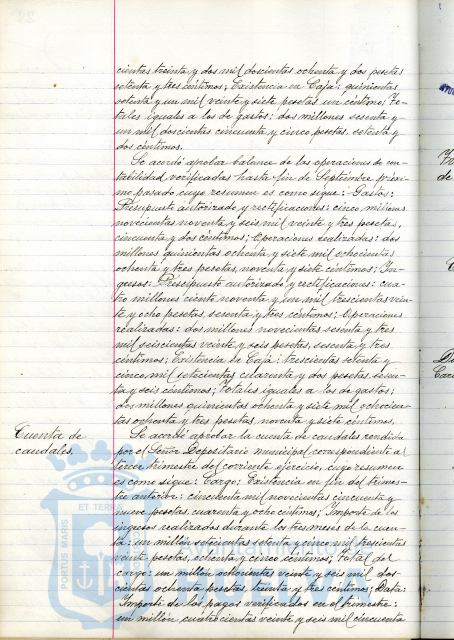 cientas treinta y dos mil doscientas ochenta y dos pesetas
setenta y tres céntimos; Existencia en Caja: quinientas
setenta y un mil veinte y siete pesetas un céntimo; To-
tales iguales a los de gastos: dos millones sesenta y
un mil doscientas cincuenta y cinco pesetas, setenta y
dos céntimos.
Se acordó aprobar balance de las operaciones de con-
tabilidad verificadas hasta fin de Septiembre próxi-
mo pasado, cuyo resumen es como sigue: Gastos:
Presupuesto autorizado y rectificaciones: cinco millones
novecientas noventa y seis mil veinte y tres pesetas,
cincuenta y dos céntimos; Operaciones realizadas: dos
millones quinientas ochenta y siete mil ochocientas
ochenta y tres pesetas, noventa y siete céntimos; In-
gresos: Presupuesto autorizado y rectificaciones: cua-
tro millones ciento noventa y un mil trescientas vein-
te y ocho pesetas, sesenta y tres céntimos; Operaciones
realizadas: dos millones novecientas sesenta y tres
mil seiscientas veinte y seis pesetas, sesenta y tres
céntimos; Existencia de Caja: trescientas setenta y
cinco mil setecientas cuarenta y dos pesetas
y seis céntimos; Totales iguales a los de gastos:
dos millones quinientas ochenta y siete mil ochocien-
tas ochenta y tres pesetas, noventa y siete céntimos.
Cuenta de
caudales.
Se acordó aprobar la cuenta de caudales rendida
por el Señor Depositario municipal correspondiente al
tercer trimestre del corriente ejercicio, cuyo resumen
es como sigue: Cargo: Existencia en fin del trimes-
tre anterior: cincuenta mil novecientas cincuenta y
nueve pesetas, cuarenta y ocho céntimos; Importe de los
ingresos realizados durante los tres meses de la cuen-
ta: un millón setecientas setenta y cinco mil trescientas
veinte pesetas, ochenta y cinco céntimos; Total del
cargo: un millón ochocientas veinte y seis mil dos-
cientas ochenta pesetas, treinta y tres céntimos; Data:
Importe de los pagos verificados en el trimestre:
un millón cuatrocientas veinte y seis mil cincuenta
PORTUS MARIS
ET TERRA
Ayuntamiento